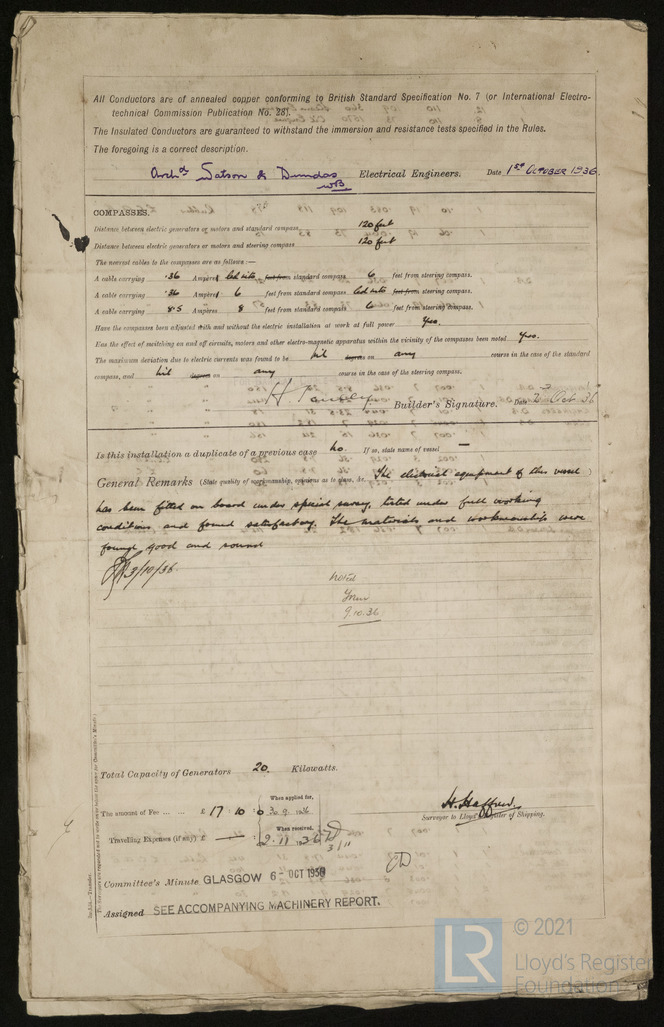 All Conductors are of annealed copper conforming to British Standard Specification No. 7 (or International Electro-
technical Commission Publication No. 28).
The Insulated Conductors are guaranteed to withstand the immersion and resistance tests specified in the Rules.
The foregoing is a correct description.
Arch'd Watson & Dundas Electrical Engineers. Date 1st October 1936.
WB
COMPASSES.
Distance between electric generators or motors and standard compass 120 feet
Distance between electric generators or motors and steering compass 120 feet
The nearest cables to the compasses are as follows:—
A cable carrying .36 Amperes led into feet from standard compass 6 feet from steering compass.
A cable carrying .36 Amperes 6 feet from standard compass led into feet from steering compass.
A cable carrying 8.5 Amperes 8 feet from standard compass 6 feet from steering compass.
Have the compasses been adjusted with and without the electric installation at work at full power Yes.
Has the effect of switching on and off circuits, motors and other electro-magnetic apparatus within the vicinity of the compasses been noted Yes.
The maximum deviation due to electric currents was found to be Nil degrees on any course in the case of the standard
compass, and Nil degrees on any course in the case of the steering compass.
Builder's Signature. Date 2 Oct 36
Is this installation a duplicate of a previous case No. If so, state name of vessel —
General Remarks (State quality of workmanship, opinions as to class, &c. The electrical equipment of this vessel)
has been fitted on board under special survey, tested under full working
conditions and found satisfactory. The materials and workmanship were
found good and sound
3/10/36.
Noted
9.10.36
Total Capacity of Generators 20. Kilowatts.
When applied for,
The amount of Fee ... ... £ 17 : 10 : 0 30.9.1936
When received,
Travelling Expenses (if any) £ — : 2.11.1936
3/11
H. Haffner.
Surveyor to Lloyd's Register of Shipping.
Committee's Minute GLASGOW 6 - OCT 1936
Assigned SEE ACCOMPANYING MACHINERY REPORT.
LR
© 2021
Lloyd's Register
Foundation